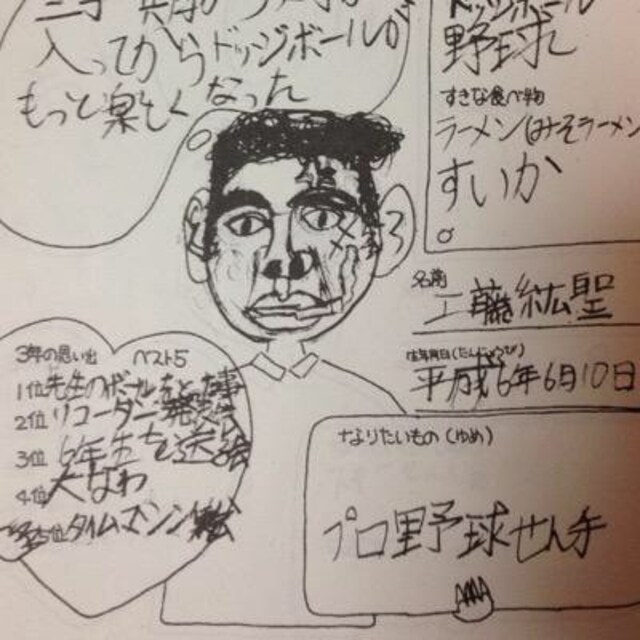 入ってからドッジボールが
もっと楽しくなった
ドッジボール
野球
すきな食べ物
ラーメン(みそラーメン
すいか
名前
工藤紘聖
生年月日(たんじょうび)
平成6年6月10日
3年の思い出 ベスト5
1位 先生のボールをとった事
2位 リコーダー発表会
3位 6年生を送る会
4位 大なわ
5位 タイムマシン
なりたいもの(ゆめ)
プロ野球せん手